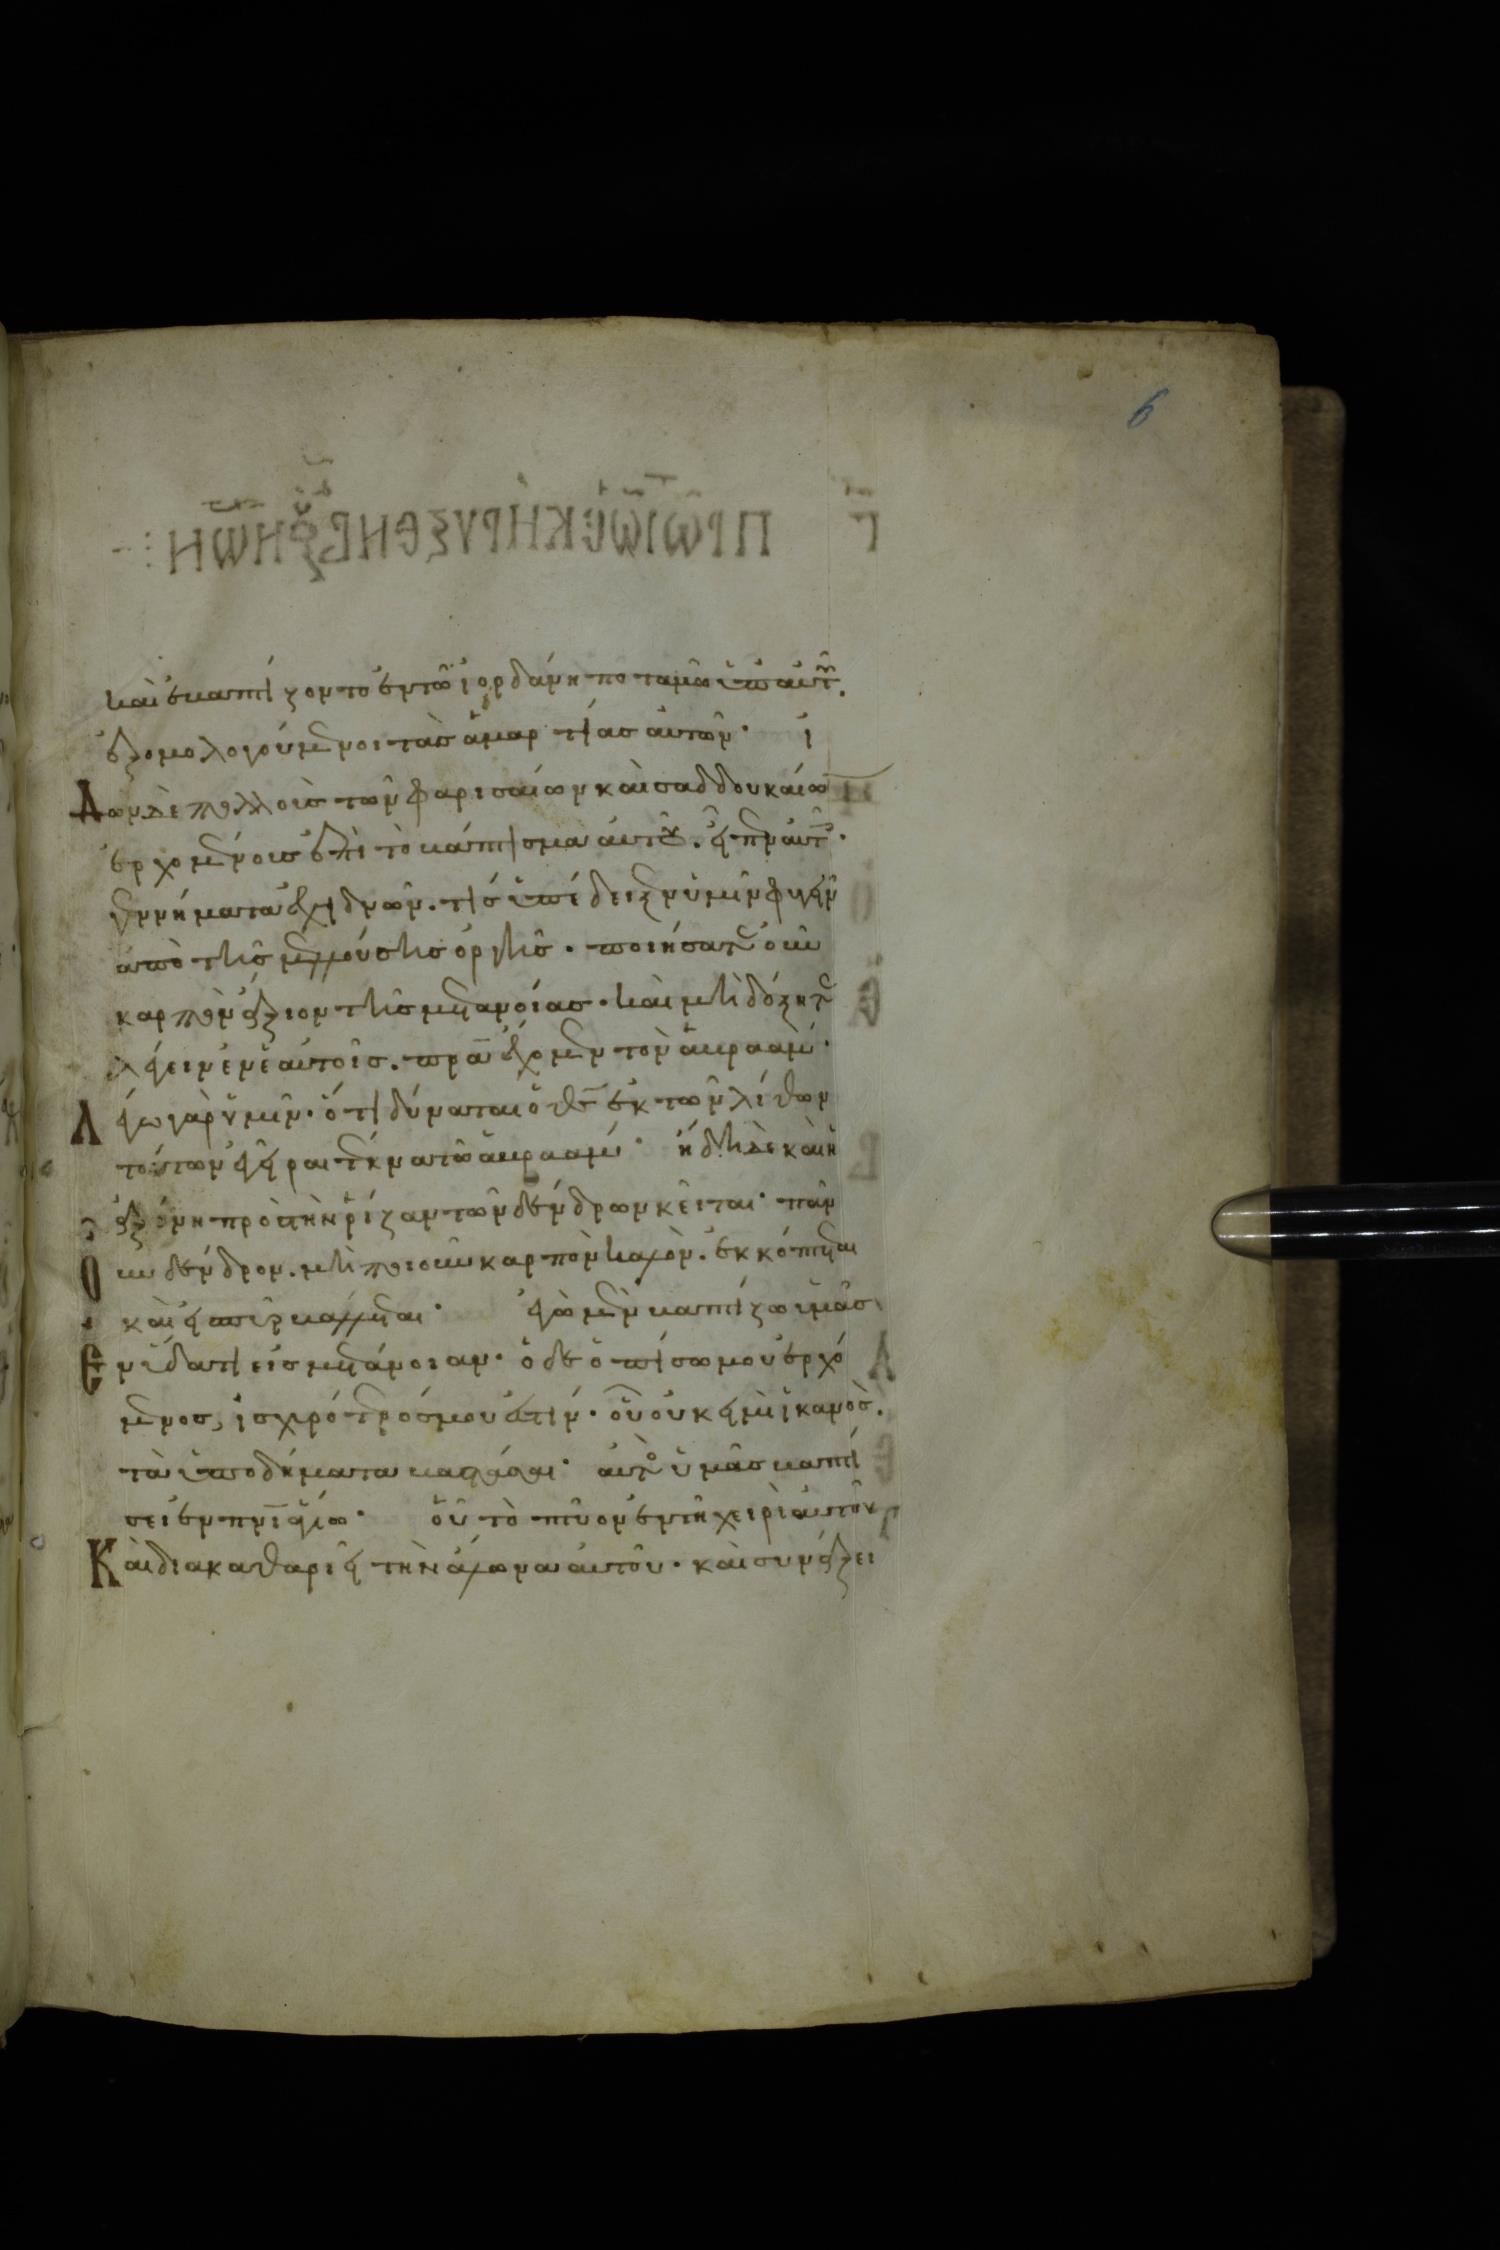 6
καὶ ἐβαπτίζοντο ἐν τῶ ἰορδάνη ποταμῶ ὑπ αὐτοῦ.
ἐξομολογούμενοι τὰς ἁμαρτίας αὐτῶν· ἰ
Δὼν δὲ πολλοὺς τῶν φαρισαίων καὶ σαδδουκαίω
ἐρχομένους ἐπὶ τὸ βάπτισμα αὐτοῦ. εἶπεν αὐτοῖς·
γεννήματα ἐχιδνῶν. τίς ὑπέδειξεν ὑμῖν φυγεῖν
ἀπὸ τῆς μελλούσης ὀργῆς. ποιήσατε οὖν
καρπὸν ἄξιον τῆς μετανοίας. καὶ μὴ δόξητε
λέγειν ἐν ἑαυτοῖς. πρα ἔχομεν τὸν ἀβραάμ·
Λέγω γὰρ ὑμῖν. ὅτι δύναται ὁ θς ἐκ τῶν λίθων
τούτων ἐγεῖραι τέκνα τῶ ἀβραάμ· ἤδη δὲ καὶ ἡ
ἀξίνη πρὸς τὴν ῥίζαν τῶν δένδρων κεῖται· πᾶν
Οὖν δένδρον. μὴ ποιοῦν καρπὸν καλὸν. ἐκκόπτεται
καὶ εἰς πῦρ βάλλεται· ἐγὼ μὲν βαπτίζω ὑμᾶς
Ἐν ὕδατι εἰς μετάνοιαν. ὁ δὲ ὀπίσω μου ἐρχό
μενος, ἰσχυρότερός μου ἐστίν. οὗ οὐκ εἰμὶ ἱκανὸς.
τὰ ὑποδήματα βαστάσαι· αὐτὸς ὑμᾶς βαπτί
σει ἐν πνι ἁγίω· οὗ τὸ πτύον ἐν τῆ χειρὶ αὐτοῦ
Καὶ διακαθαριεῖ τὴν ἅλωνα αὐτοῦ. καὶ συνάξει